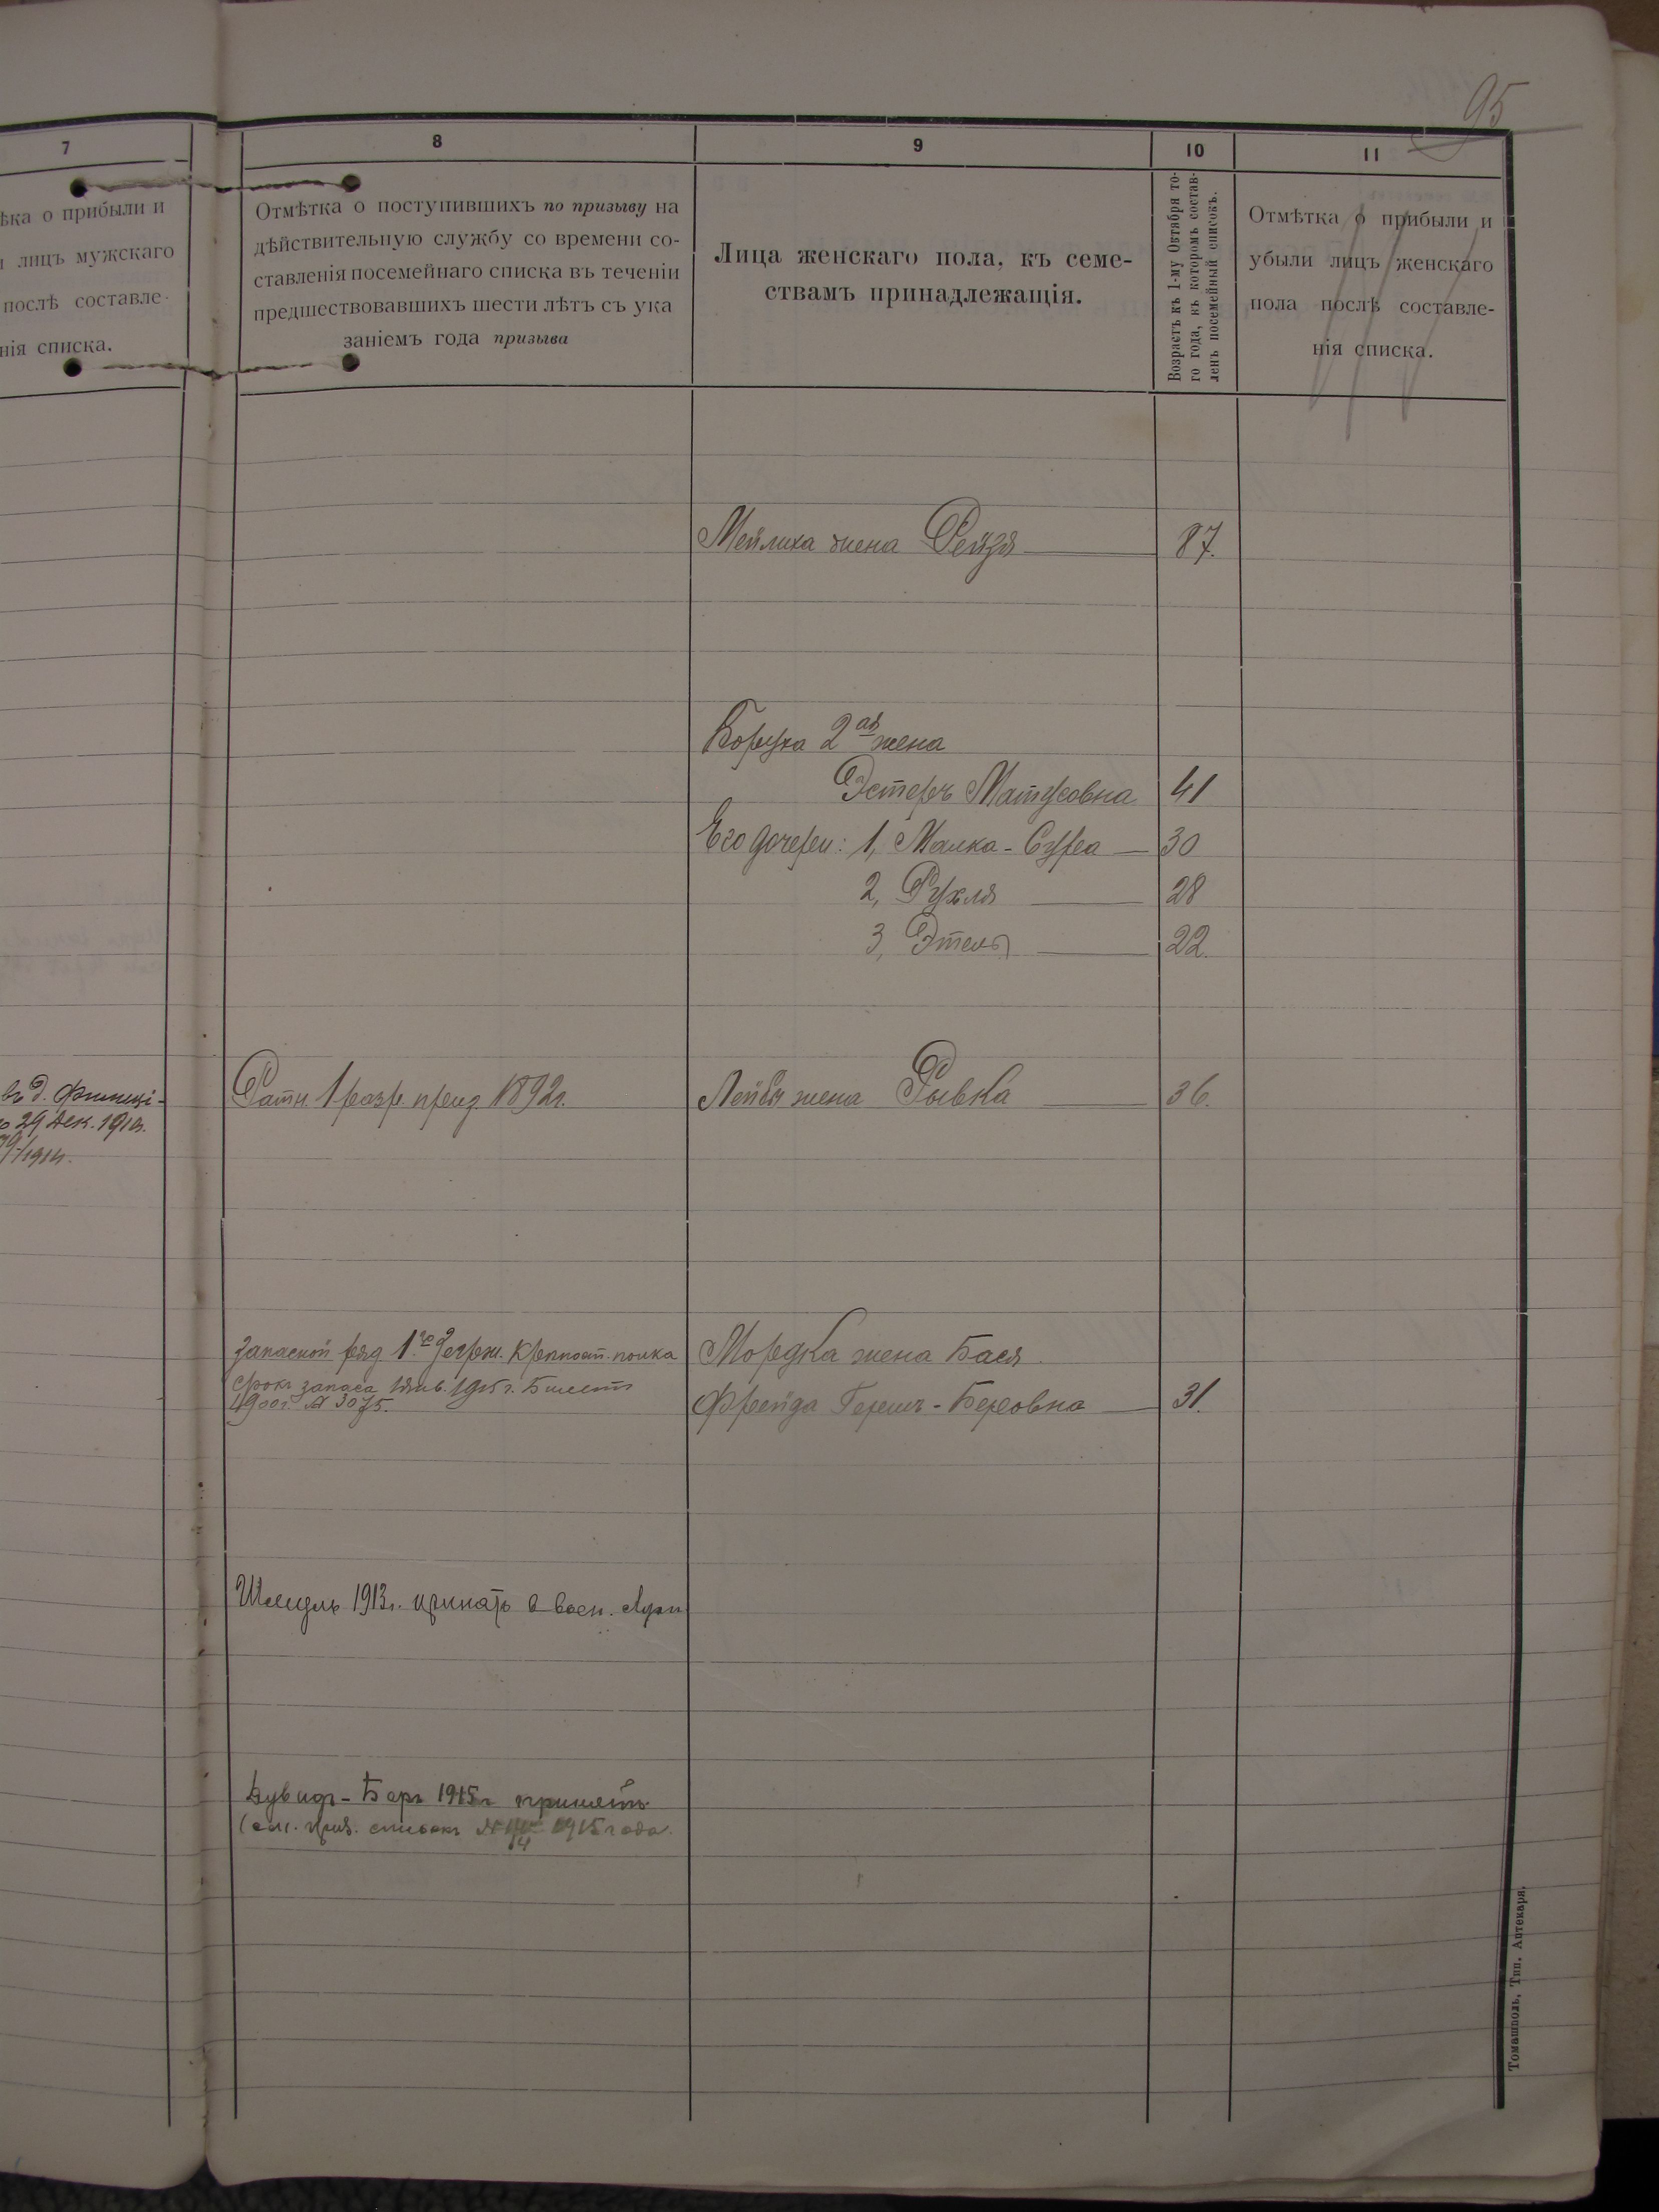 95
7
8
9
10
11
ѣка о прибыли и
лицъ мужскаго
послѣ составле-
нія списка.
Отмѣтка о поступившихъ по призыву на
дѣйствительную службу со времени со-
ставленія посемейнаго списка въ теченіи
предшествовавшихъ шести лѣтъ съ ука
заніемъ года призыва
Лица женскаго пола, къ семе-
ствамъ принадлежащія.
Возрастъ къ 1-му Октября то-
го года, въ которомъ состав-
ленъ посемейный списокъ.
Отмѣтка о прибыли и
убыли лицъ женскаго
пола послѣ составле-
нія списка.
Мейлиха жена Рейзя 87.
Боруха 2ая жена
Эстеръ Матусовна 41
Его дочери: 1, Малка-Сура 30
2, Рухля 28
3, Этель 22.
въ д.
29 Дек. 191
/1914.
Ратн. 1 разр. приз. 1892г.
Лейбы жена Рывка 36.
Запасной ряд. 1го Зегрж. Крѣпост. полка
Срокъ запаса 1915 г. Билетъ
1900г. № 3075.
Мордка жена Бася
Фрейда Гершъ-Беровна 31.
1913г. принятъ в воен.
Дувидъ-Беръ 1915г принятъ
приз. списокъ № 1915 года.
Томашполь, Тип. Аптекаря.